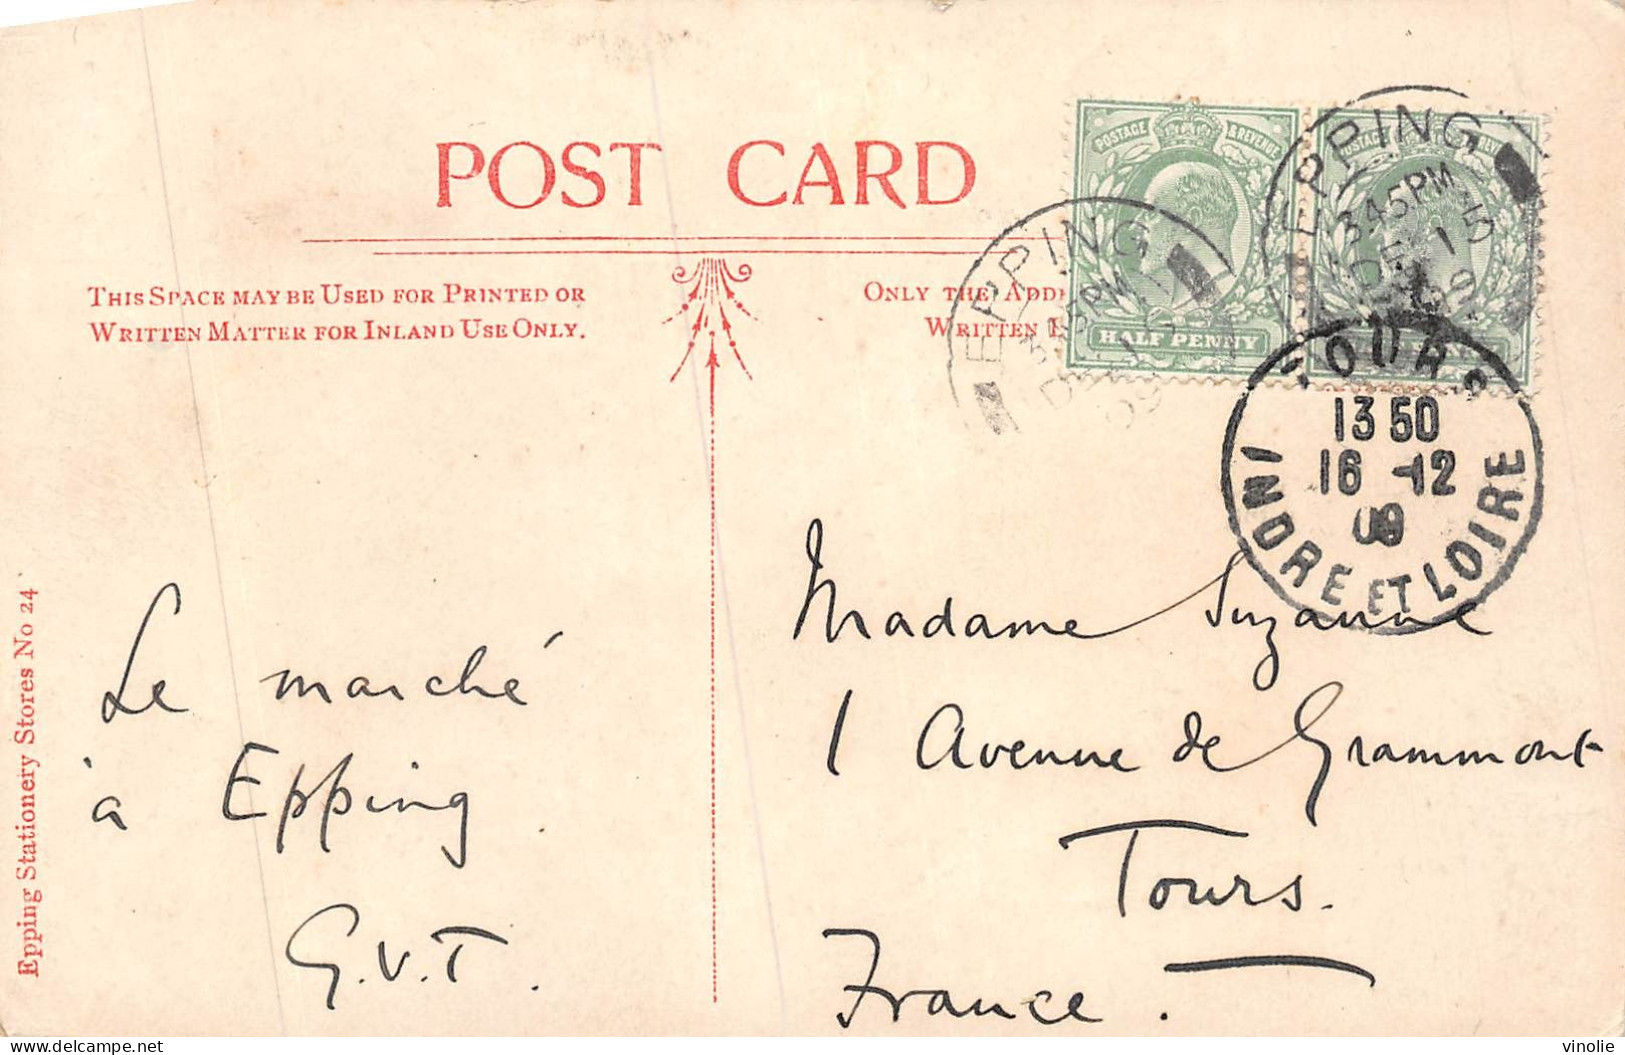 POST CARD
THIS SPACE MAY BE USED FOR PRINTED OR
WRITTEN MATTER FOR INLAND USE ONLY.
ONLY THE ADD
WRITTEN
POSTAGE & REVENUE
HALF PENNY
EPPING
3.45PM
DE 15
09
EPPING
PM
09
TOURS
13 50
16 -12
09
INDRE ET LOIRE
Le marché
à Epping.
G.V.T.
Madame Suzanne
1 Avenue de Grammont
Tours.
France.
Epping Stationery Stores No 24
delcampe.net
vinolie